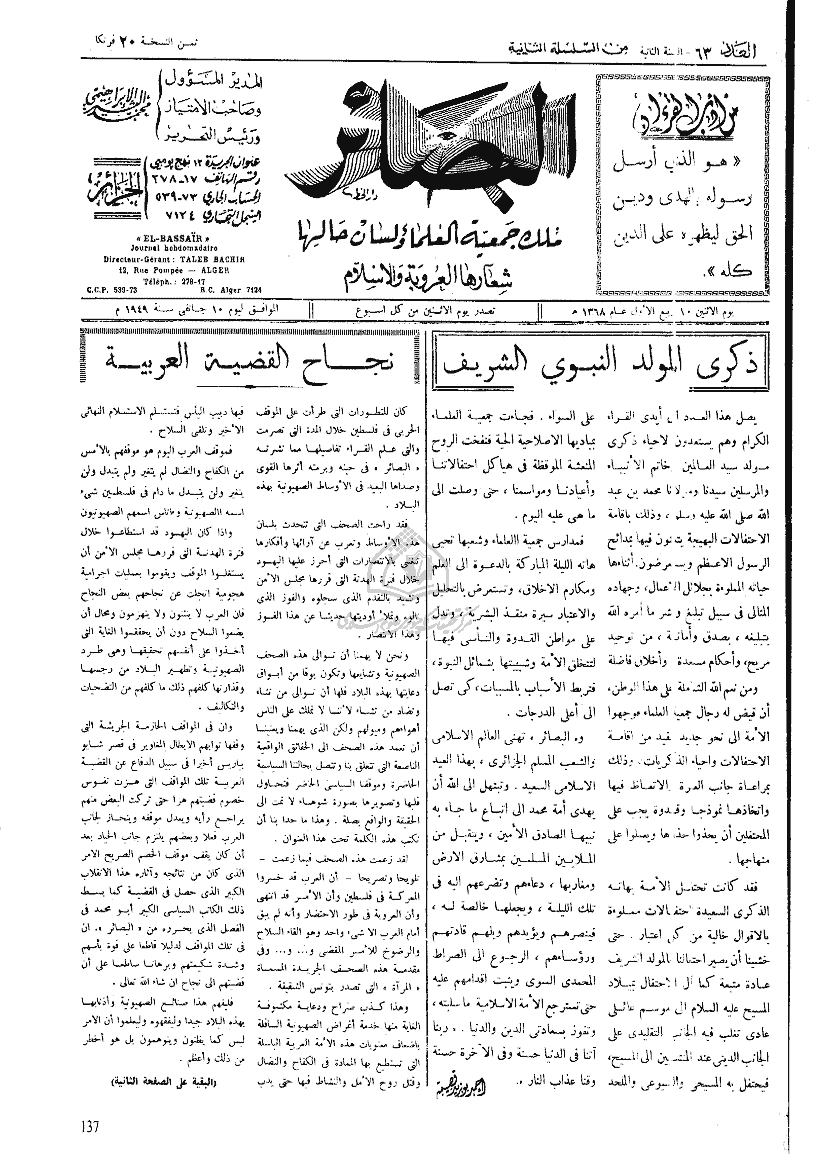 العدد ٦٣ - السنة الثانية من السلسلة الثانية
ثمن النسخة ٢٠ فرنكا
« هو الذي أرسل
رسوله بالهدى ودين
الحق ليظهره على الدين
كله ».
البصائر
دار الخط
ملك جمعية العلماء ولسان حالها
شعارها العروبة والاسلام
المدير المسؤول
وصاحب الامتياز
ورئيس التحرير
عنوان الجريدة ١٢ نهج بومبي
رقم الهاتف ١٧-٢٧٨
الحساب الجاري ٧٣-٥٣٩
السجل التجاري ٧١٢٤
الجزائر
« EL-BASSAÏR »
Journal hebdomadaire
Directeur-Gérant : TALEB BACHIR
12, Rue Pompée — ALGER
Téléph. : 278-17
C.C.P. 539-73 R.C. Alger 7124
يوم الاثنين ١٠ ربيع الأول عام ١٣٦٨ هـ
تصدر يوم الاثنين من كل اسبوع
الموافق ليوم ١٠ جانفي سنة ١٩٤٩ م
ذكرى المولد النبوي الشريف
يصل هذا العدد الى أيدي القراء
الكرام وهم يستعدون لاحياء ذكرى
مولد سيد العالمين خاتم الأنبياء
والمرسلين سيدنا ومولانا محمد بن عبد
الله صلى الله عليه وسلم ، وذلك باقامة
الاحتفالات البهيجة يتلون فيها بمدائح
الرسول الاعظم ويستعرضون أثناءها
حياته المملوءة بجلائل الأعمال، وجهاده
المثالى فى سبيل تبليغ ونشر ما أمره الله
بتبليغه ، بصدق وأمانة ، من توحيد
مريح، وأحكام مسعدة وأخلاق فاضلة
ومن نعم الله الشاملة على هذا الوطن،
أن قيض له رجال جمعية العلماء فوجهوا
الأمة الى نحو جديد مفيد من اقامة
الاحتفالات واحياء الذكريات. وذلك
بمراعاة جانب العبرة والاتعاظ فيها
واتخاذها نموذجا وقدوة يجب على
المحتفلين أن يحذوا حذوها ويعملوا على
منهاجها.
فقد كانت تحتفل الأمة بهاته
الذكرى السعيدة احتفالات مملوءة
بالاقوال خالية من كل اعتبار . حتى
خشينا أن يصير احتفالنا بالمولد الشريف
عادة متبعة كما آل الاحتفال بميلاد
المسيح عليه السلام الى موسم عائلى
عادى تغلب فيه الجانب التقليدى على
الجانب الدينى عند المنتسبين الى المسيح،
فيحتفل به المسيحى والشيوعى والملحد
على السواء . فجاءت جمعية العلماء
بمباديها الاصلاحية الحية فنفخت الروح
المنعشة الموقظة فى هياكل احتفالاتنا
وأعيادنا ومواسمنا ، حتى وصلت الى
ما هى عليه اليوم .
فمدارس جمعية العلماء وشعبها تحيى
هاته الليلة المباركة بالدعوة الى العلم
ومكارم الاخلاق، وتستعرض بالتحليل
والاعتبار سيرة منقذ البشرية ، وتدل
على مواطن القدوة والتأسى فيها
لتتخلق الأمة وشبيبتها بشمائل النبوة،
فتربط الأسباب بالمسببات، كى تصل
الى أعلى الدرجات .
و« البصائر » تهنى العالم الاسلامى
والشعب المسلم الجزائرى ، بهذا العيد
الاسلامى السعيد . وتبتهل الى الله أن
يهدى أمة محمد الى اتباع ما جاء به
نبيها الصادق الأمين ، ويتقبل من
الملايين المسلمين بمشارق الارض
ومغاربها ، دعاءهم وتضرعهم اليه فى
تلك الليلة ، ويجعلها خالصة له ،
فينصرهم ويؤيدهم ويلهم قادتهم
ورؤساءهم ، الرجوع الى الصراط
المحمدى السوى ويثبت اقدامهم عليه
حتى تسترجع الأمة الاسلامية ما سلبته ،
وتفوز بسعادتى الدين والدنيا . « ربنا
آتنا فى الدنيا حسنة وفى الآخرة حسنة
وقنا عذاب النار ».
نجاح القضية العربية
كان للتطورات التى طرأت على الموقف
الحربى فى فلسطين خلال المدة التى تصرمت
والتى علم القراء تفاصيلها مما نشرته
« البصائر » فى حينه وبرمته أثرها القوى
وصداها البعيد فى الأوساط الصهيونية بهذه
البلاد .
فقد راحت الصحف التى تتحدث بلسان
هذه الأوساط وتعرب عن آرائها وأفكارها
تتغنى بالانتصارات التى أحرز عليها اليهود
خلال فترة الهدنة التى قررها مجلس الأمن
وتشيد بالتقدم الذى سجلوه والفوز الذى
نالوه وتملأ أوديتها حديثا عن هذا الفوز
وهذا الانتصار .
ونحن لا يهمنا أن توالى هذه الصحف
الصهيونية وتشايعها وتكون بوقا من أبواق
دعايتها بهذه البلاد فلها أن توالى من تشاء
وتضاد من تشاء لأننا لا نملك على الناس
أهواءهم وميولهم ولكن الذى يهمنا ويعنينا
أن تعمد هذه الصحف الى الحقائق الواقعية
الناصعة التى تتعلق بنا وتتصل بحالتنا السياسية
الحاضرة وموقفنا السياسى الحاضر فتحاول
قلبها وتصويرها بصورة شوهاء لا تمت الى
الحقيقة والواقع بصلة . وهذا ما حدا بنا أن
نكتب هذه الكلمة تحت هذا العنوان .
لقد زعمت هذه الصحف فيما زعمت -
تلويحا وتصريحا - أن العرب قد خسروا
المعركة فى فلسطين وأن الأمر قد انتهى
وأن العروبة فى طور الاحتضار وأنه لم يبق
أمام العرب الا شىء واحد وهو القاء السلاح
والرضوخ للأمر المقضى و... و... وفى
مقدمة هذه الصحف الجريدة المسماة
« المرآة » التى تصدر بتونس الشقيقة .
وهذا كذب صراح ودعاية مكشوفة
الغاية منها خدمة أغراض الصهيونية السافلة
باضعاف معنويات هذه الأمة العربية الباسلة
التى تستطيع بها المادة فى الكفاح والنضال
وقتل روح الأمل والنشاط فيها حتى يدب
فيها دبيب اليأس فتستسلم الاستسلام النهائى
الأخير وتلقى السلاح .
فموقف العرب اليوم هو موقفهم بالأمس
من الكفاح والنضال لم يتغير ولم يتبدل ولن
يتغير ولن يتبدل ما دام فى فلسطين شىء
اسمه الصهيونية وأناس اسمهم الصهيونيون
واذا كان اليهود قد استطاعوا خلال
فترة الهدنة التى قررها مجلس الأمن أن
يستغلوا الموقف ويقوموا بعمليات اجرامية
هجومية انجلت عن نجاحهم بعض النجاح
فان العرب لا يثنون ولا ينهزمون ومحال أن
يضعوا السلاح دون أن يحققوا الغاية التى
أخذوا على أنفسهم تحقيقها وهى طرد
الصهيونية وتطهير البلاد من رجسها
وقذارتها كلفهم ذلك ما كلفهم من التضحيات
والتكاليف .
وان فى المواقف الحازمة الجريئة التى
وقفها نوابهم الابطال المغاوير فى قصر شايو
بباريس أخيرا فى سبيل الدفاع عن القضية
العربية تلك المواقف التى هزت نفوس
خصوم قضيتهم هزا حتى تركت البعض منهم
يراجع رأيه ويبدل موقفه وينحاز لجانب
العرب فعلا وبعضهم يلتزم جانب الحياد بعد
أن كان يقف موقف الخصم الصريح الأمر
الذى كان من نتائجه وآثاره هذا الانقلاب
الكبير الذى حصل فى القضية كما يبسط
ذلك الكاتب السياسى الكبير أبو محمد فى
الفصل الذى يحرره من « البصائر ». ان
فى تلك المواقف لدليلا قاطعا على قوة بأسهم
وشدة شكيمتهم وبرهانا ساطعا على أن
قضيتهم الى نجاح ان شاء الله تعالى .
فليفهم هذا صنائع الصهيونية وأذنابها
بهذه البلاد جيدا وليفقهوه وليعلموا أن الأمر
ليس كما يظنون ويتوهمون بل هو أخطر
من ذلك وأعظم .
(البقية على الصفحة الثانية)
137